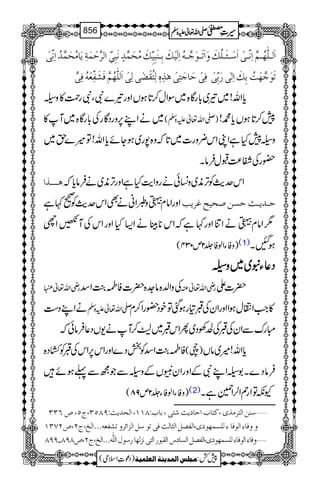 سیرتِ مصطفی صلی اللہ تعالیٰ علیہ وسلم 856
اَللّٰـھُـمَّ اِنِّـیْ اَسْـئَـلُـکَ وَاَتَـوَجَّـہُ اِلَیْکَ بِـنَـبِـیِّکَ مُحَمَّدٍ نَّـبِـیِّ الرَّحْمَۃِ یَامُحَمَّدُ اِنِّیْ
تَوَجَّھْتُ بِکَ اِلٰی رَبِّیْ فِیْ حَاجَتِیْ ھٰذِہٖ لِتُقْضٰی لِیَ اَللّٰھُمَّ فَشَفِّعْہُ فِیَّ
یااللہ! میں تیری بارگاہ میں سوال کرتا ہوں اور تیرے نبی، نبی رحمت کا وسیلہ
پیش کرتا ہوں یا محمد! (صلی اللہ تعالیٰ علیہ وسلم) میں نے اپنے پروردگار کی بارگاہ میں آپ کا
وسیلہ پیش کیا ہے اپنی اس ضرورت میں تاکہ وہ پوری ہو جائے یااللہ! تو میرے حق میں
حضور کی شفاعت قبول فرما۔
اس حدیث کو ترمذی ونسائی نے روایت کیا ہے اور ترمذی نے فرمایا کہ ھـــذا
حـدیـث حسن صحیح غریب اور امام بیہقی وطبرانی نے بھی اس حدیث کو صحیح کہا ہے
مگر امام بیہقی نے اتنا اور کہا ہے کہ اس نابینا نے ایسا کیا اور اس کی آنکھیں اچھی
ہو گئیں۔ (1) (وفاء الوفاء جلد۲ ص۴۳۰)
دعاء نبوی میں وسیلہ
حضرت علی رضی اللہ تعالیٰ عنہ کی والدہ ماجدہ حضرت فاطمہ بنت اسد رضی اللہ تعالیٰ عنہا
کا جب انتقال ہوا اور ان کی قبر تیار ہو گئی تو خود حضور اکرم صلی اللہ تعالیٰ علیہ وسلم نے اپنے دست
مبارک سے ان کی قبر کی لحد کھودی پھر اس قبر میں لیٹ کر آپ نے یوں دعا فرمائی کہ
یااللہ! میری ماں (چچی) فاطمہ بنت اسد کو بخش دے اور اس پر اس کی قبر کو کشادہ
فرما دے۔ بوسیلہ اپنے نبی کے اور ان نبیوں کے وسیلہ سے جو مجھ سے پہلے ہوئے ہیں
کیونکہ تو ارحم الراحمین ہے۔ (2) (وفاء الوفاء جلد۲ ص۸۹)
1.....سنن الترمذی، کتاب احادیث شتی، باب:۱۱۸، الحدیث:۳۵۸۹، ج۵، ص۳۳۶
و وفاء الوفاء للسمهودی،الفصل الثالث فی تو سل الزائرو تشفعہ...الخ، ج۲،ص۱۳۷۲
2.....وفاء الوفاء للسمهودی،الفصل السادس القبور التی نزلھا رسول اللّٰہ...الخ،ج۲،ص۸۹۸۔۸۹۹
پیش کش: مجلس المدینۃ العلمیۃ (دعوتِ اسلامی)